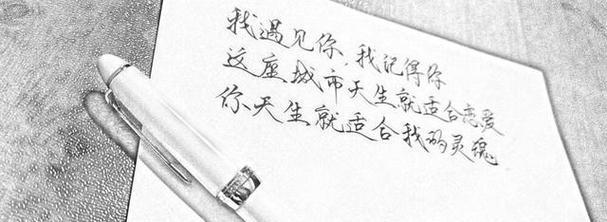 我遇见你，我记得你
这座城市天生就适合恋爱
你天生就适合我的灵魂